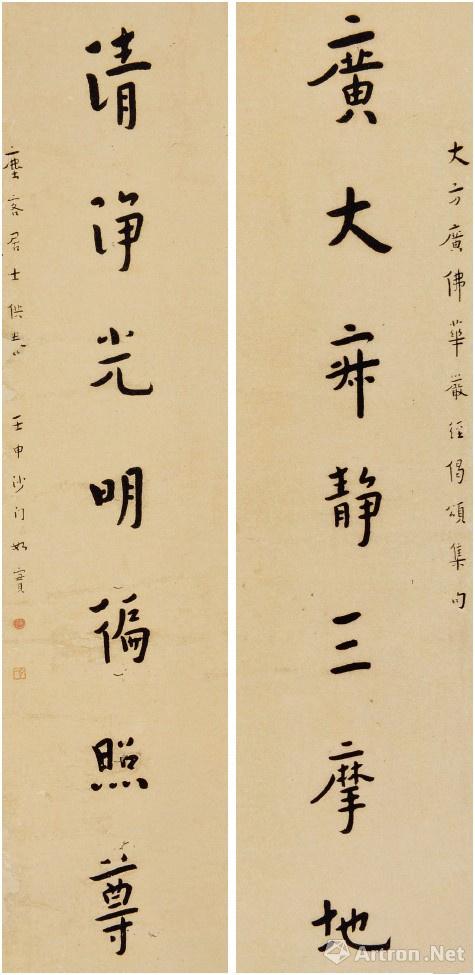 大方廣佛華嚴經偈頌集句
廣大寂靜三摩地
清淨光明徧照尊
塵客居士供養 壬申沙門如實
Artron.Net